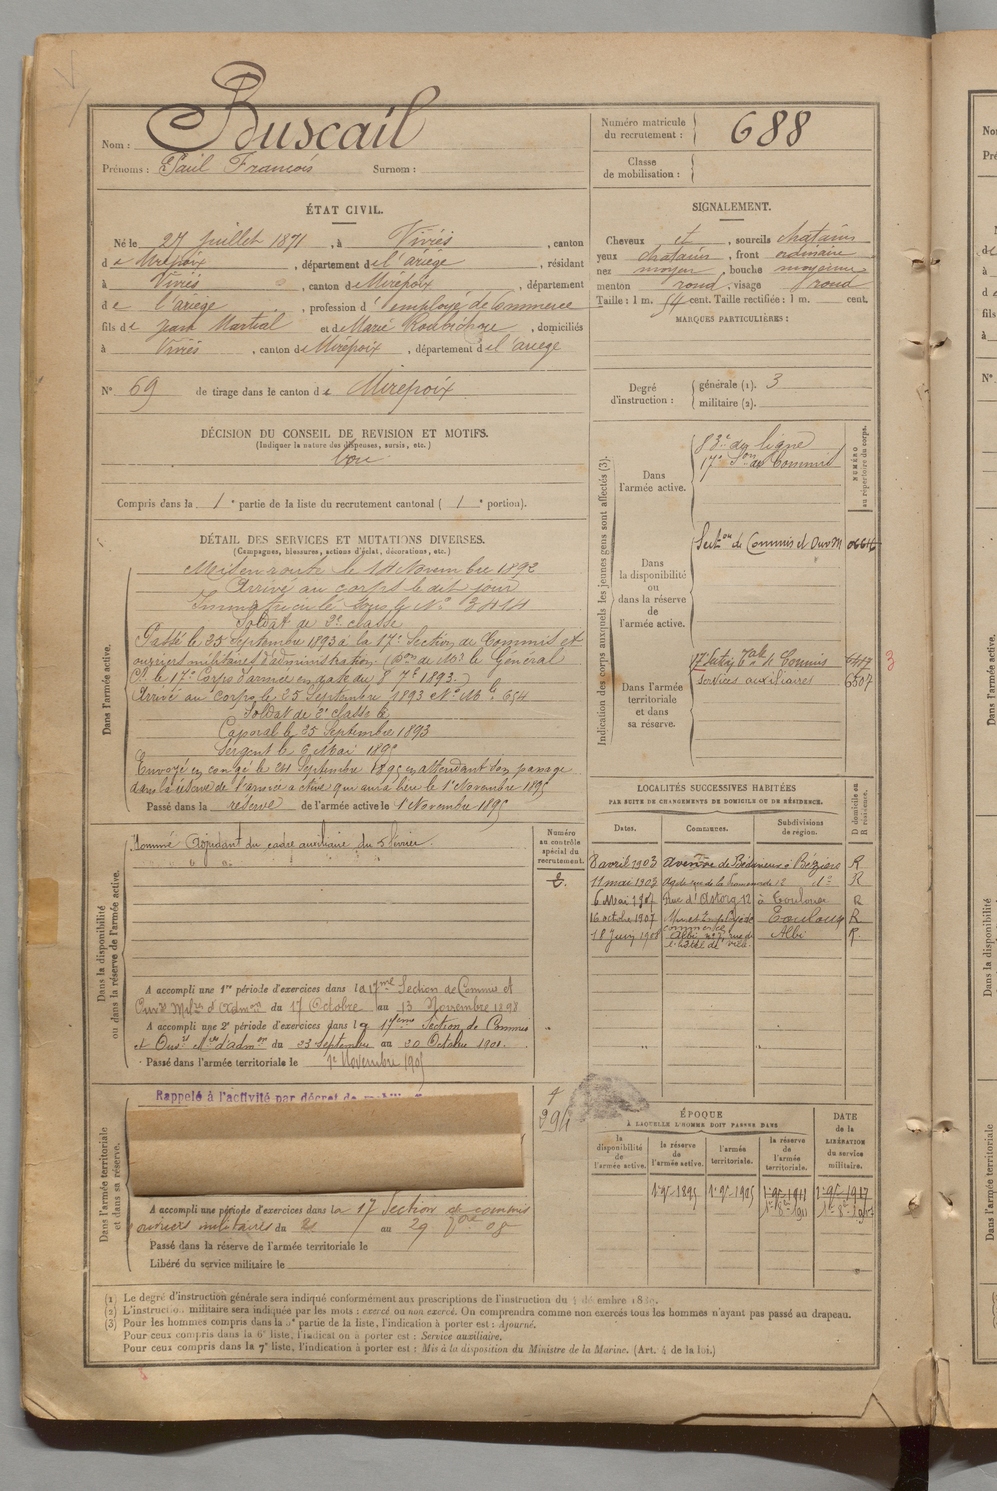 Nom : Buscail
Prénoms : Paul François Surnom :
Numéro matricule du recrutement : 688
Classe de mobilisation :
ÉTAT CIVIL.
Né le 27 Juillet 1871, à Viviès, canton
de Mirepoix, département de l'ariège, résidant
à Viviès, canton de Mirepoix, département
de l'ariège, profession d'employé de Commerce
fils de Jean Martial et de Marie, domiciliés
à Viviès, canton de Mirepoix, département de l'ariege
N° 69 de tirage dans le canton de Mirepoix
SIGNALEMENT.
Cheveux et, sourcils chatains
yeux chatains, front ordinaire
nez moyen, bouche moyenne
menton rond, visage rond
Taille : 1 m. 54 cent. Taille rectifiée : 1 m. cent.
MARQUES PARTICULIÈRES :
Degré d'instruction : générale (1). 3
militaire (2).
DÉCISION DU CONSEIL DE REVISION ET MOTIFS.
(Indiquer la nature des dispenses, sursis, etc.)
bon
Compris dans la 1e partie de la liste du recrutement cantonal (1e portion).
DÉTAIL DES SERVICES ET MUTATIONS DIVERSES.
(Campagnes, blessures, actions d'éclat, décorations, etc.)
Dans l'armée active.
Mis en route le 14 Novembre 1892
Arrivé au corps le dit jour
Immatriculé sous le N° 3414
Soldat de 2e classe
Passé le 25 Septembre 1893 à la 17e Section de Commis et
ouvriers militaires d'administration (Don de Mr le Général
Ct le 17e Corps d'armée en date du 8 7e 1893.)
Arrivé au corps le 25 Septembre 1893 N° Mle 654
Soldat de 2e classe le
Caporal le 25 Septembre 1893
Sergent le 6 Mai 1895
Envoyé en congé le 24 Septembre 1895 en attendant son passage
dans la réserve de l'armée active qui aura lieu le 1er Novembre 1895
Passé dans la réserve de l'armée active le 1 Novembre 1895
Indication des corps auxquels les jeunes gens sont affectés (3).
NUMÉRO au répertoire du corps.
Dans l'armée active.
83e de ligne
17e Son de Commis
Dans la disponibilité ou dans la réserve de l'armée active.
Section de Commis et Ouv M
Dans l'armée territoriale et dans sa réserve.
17 Section Tale de Commis 6417 3
Services auxiliaires 6507
LOCALITÉS SUCCESSIVES HABITÉES
PAR SUITE DE CHANGEMENTS DE DOMICILE OU DE RÉSIDENCE.
Dates. Communes. Subdivisions de région. D domicile ou R résidence.
8 avril 1903 Avenue de Bédarieux à Béziers R
11 mai 1903 Agde rue de la Promenade 12 do R
6 Mai 1907 Rue d'Astorg 12 à Toulouse R
16 octobre 1907 Toulouse R
18 Juin 1908 Albi rue de l'hôtel de ville Albi R.
Dans la disponibilité ou dans la réserve de l'armée active.
Numéro au contrôle spécial du recrutement.
Nommé Adjudant du cadre auxiliaire du 5 février.
A accompli une 1re période d'exercices dans la 17me Section de Commis et
Ouvrs Milres d'Admon du 17 Octobre au 13 Novembre 1898
A accompli une 2e période d'exercices dans la 17ème Section de Commis
et Ouvrs Mres d'admon du 23 septembre au 20 Octobre 1901.
Passé dans l'armée territoriale le 1er Novembre 1905
Dans l'armée territoriale et dans sa réserve.
Rappelé à l'activité par décret de
294
A accompli une période d'exercices dans la 17 Section de commis
ouvriers militaires du 21 au 29 08
Passé dans la réserve de l'armée territoriale le
Libéré du service militaire le
ÉPOQUE
À LAQUELLE L'HOMME DOIT PASSER DANS
la disponibilité de l'armée active. la réserve de l'armée active. l'armée territoriale. la réserve de l'armée territoriale.
DATE de la LIBÉRATION du service militaire.
1er 9e 1895 1er 9e 1905 1er 9e 1911 1er 9e 1917
(1) Le degré d'instruction générale sera indiqué conformément aux prescriptions de l'instruction du décembre
(2) L'instruction militaire sera indiquée par les mots : exercé ou non exercé. On comprendra comme non exercés tous les hommes n'ayant pas passé au drapeau.
(3) Pour les hommes compris dans la 5e partie de la liste, l'indication à porter est : Ajourné.
Pour ceux compris dans la 6e liste, l'indication à porter est : Service auxiliaire.
Pour ceux compris dans la 7e liste, l'indication à porter est : Mis à la disposition du Ministre de la Marine. (Art. 4 de la loi.)